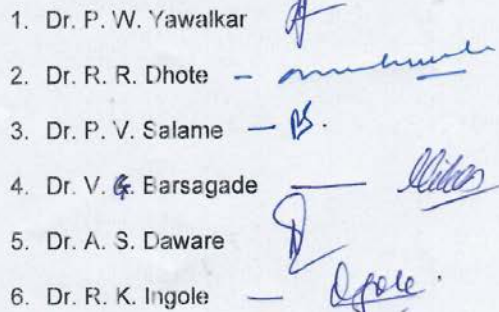 1. Dr. P. W. Yawalkar
2. Dr. R. R. Dhote –
3. Dr. P. V. Salame –
4. Dr. V. G. Barsagade –
5. Dr. A. S. Daware
6. Dr. R. K. Ingole –